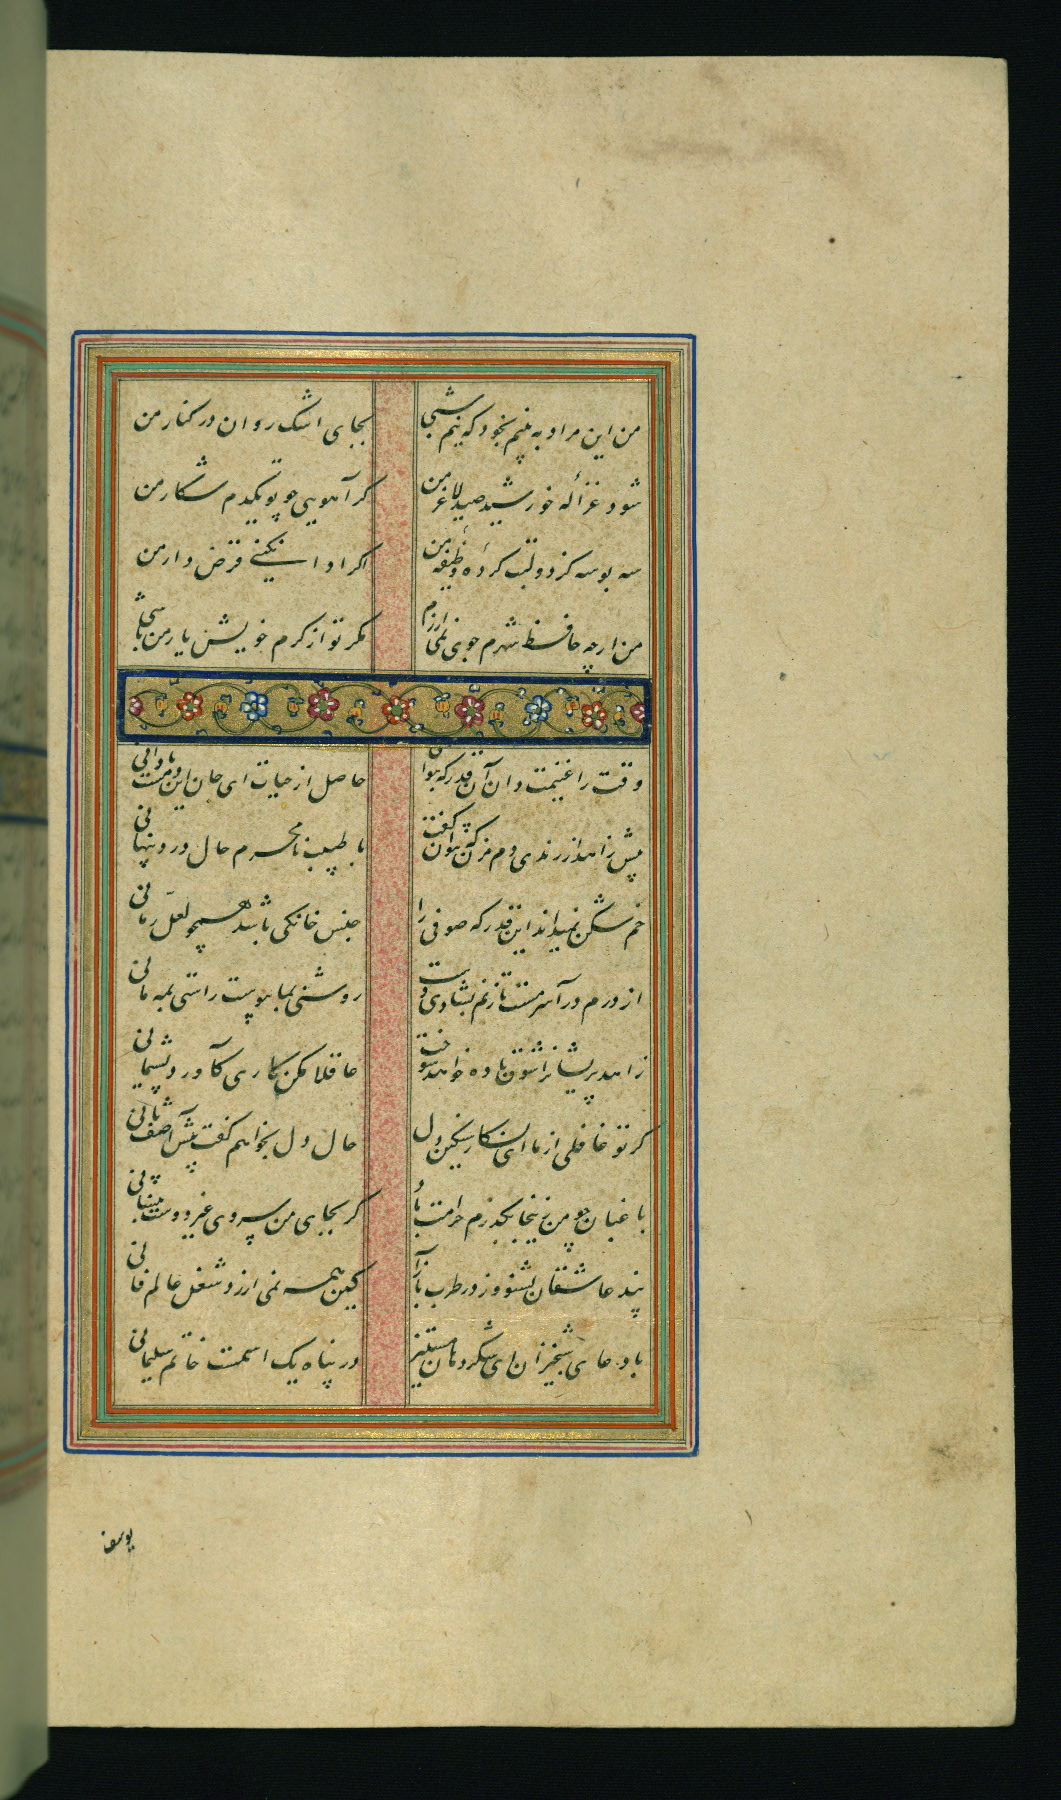 من این مراد به بینم بخود که نیم شبی بجای اشک روان در کنار من
شود غزالهٔ خورشید صید لاغر من گر آهویی چو تو یکدم شکار من
سه بوسه کز دو لبت کردهٔ وظیفهٔ من اگر ادا نکنی قرض دار من
من ارچه حافظ شهرم جوی نمی‌ارزم مگر تو از کرم خویش یار من باشی
وقت را غنیمت دان آن قدر که بتوانی حاصل از حیات ای جان این دمست تا دانی
پیش زاهد از رندی دم مزن که نتوان گفت با طبیب نامحرم حال درد پنهانی
خم شکن نمیداند این قدر که صوفی را جنس خانگی باشد همچو لعل رمانی
از درم درآ سرمست تا زنم بشادی دست روشنی بما پیوست راستی بمه مانی
زاهد پریشانرا شوق باده خواهد سوخت عاقلا مکن کاری کآورد پشیمانی
گر تو غافلی از ما ای نگار سنگین دل حال دل بخواهم گفت پیش آصف ثانی
باغبان چو من زینجا بگذرم حرامت باد گر بجای من سروی غیر دوست بنشانی
پند عاشقان بشنو وز در طرب بازآ کین همه نمی ارزد شغل عالم فانی
با دعای شبخیزان ای شکر دهان مستیز در پناه یک اسمست خاتم سلیمانی
یوسف